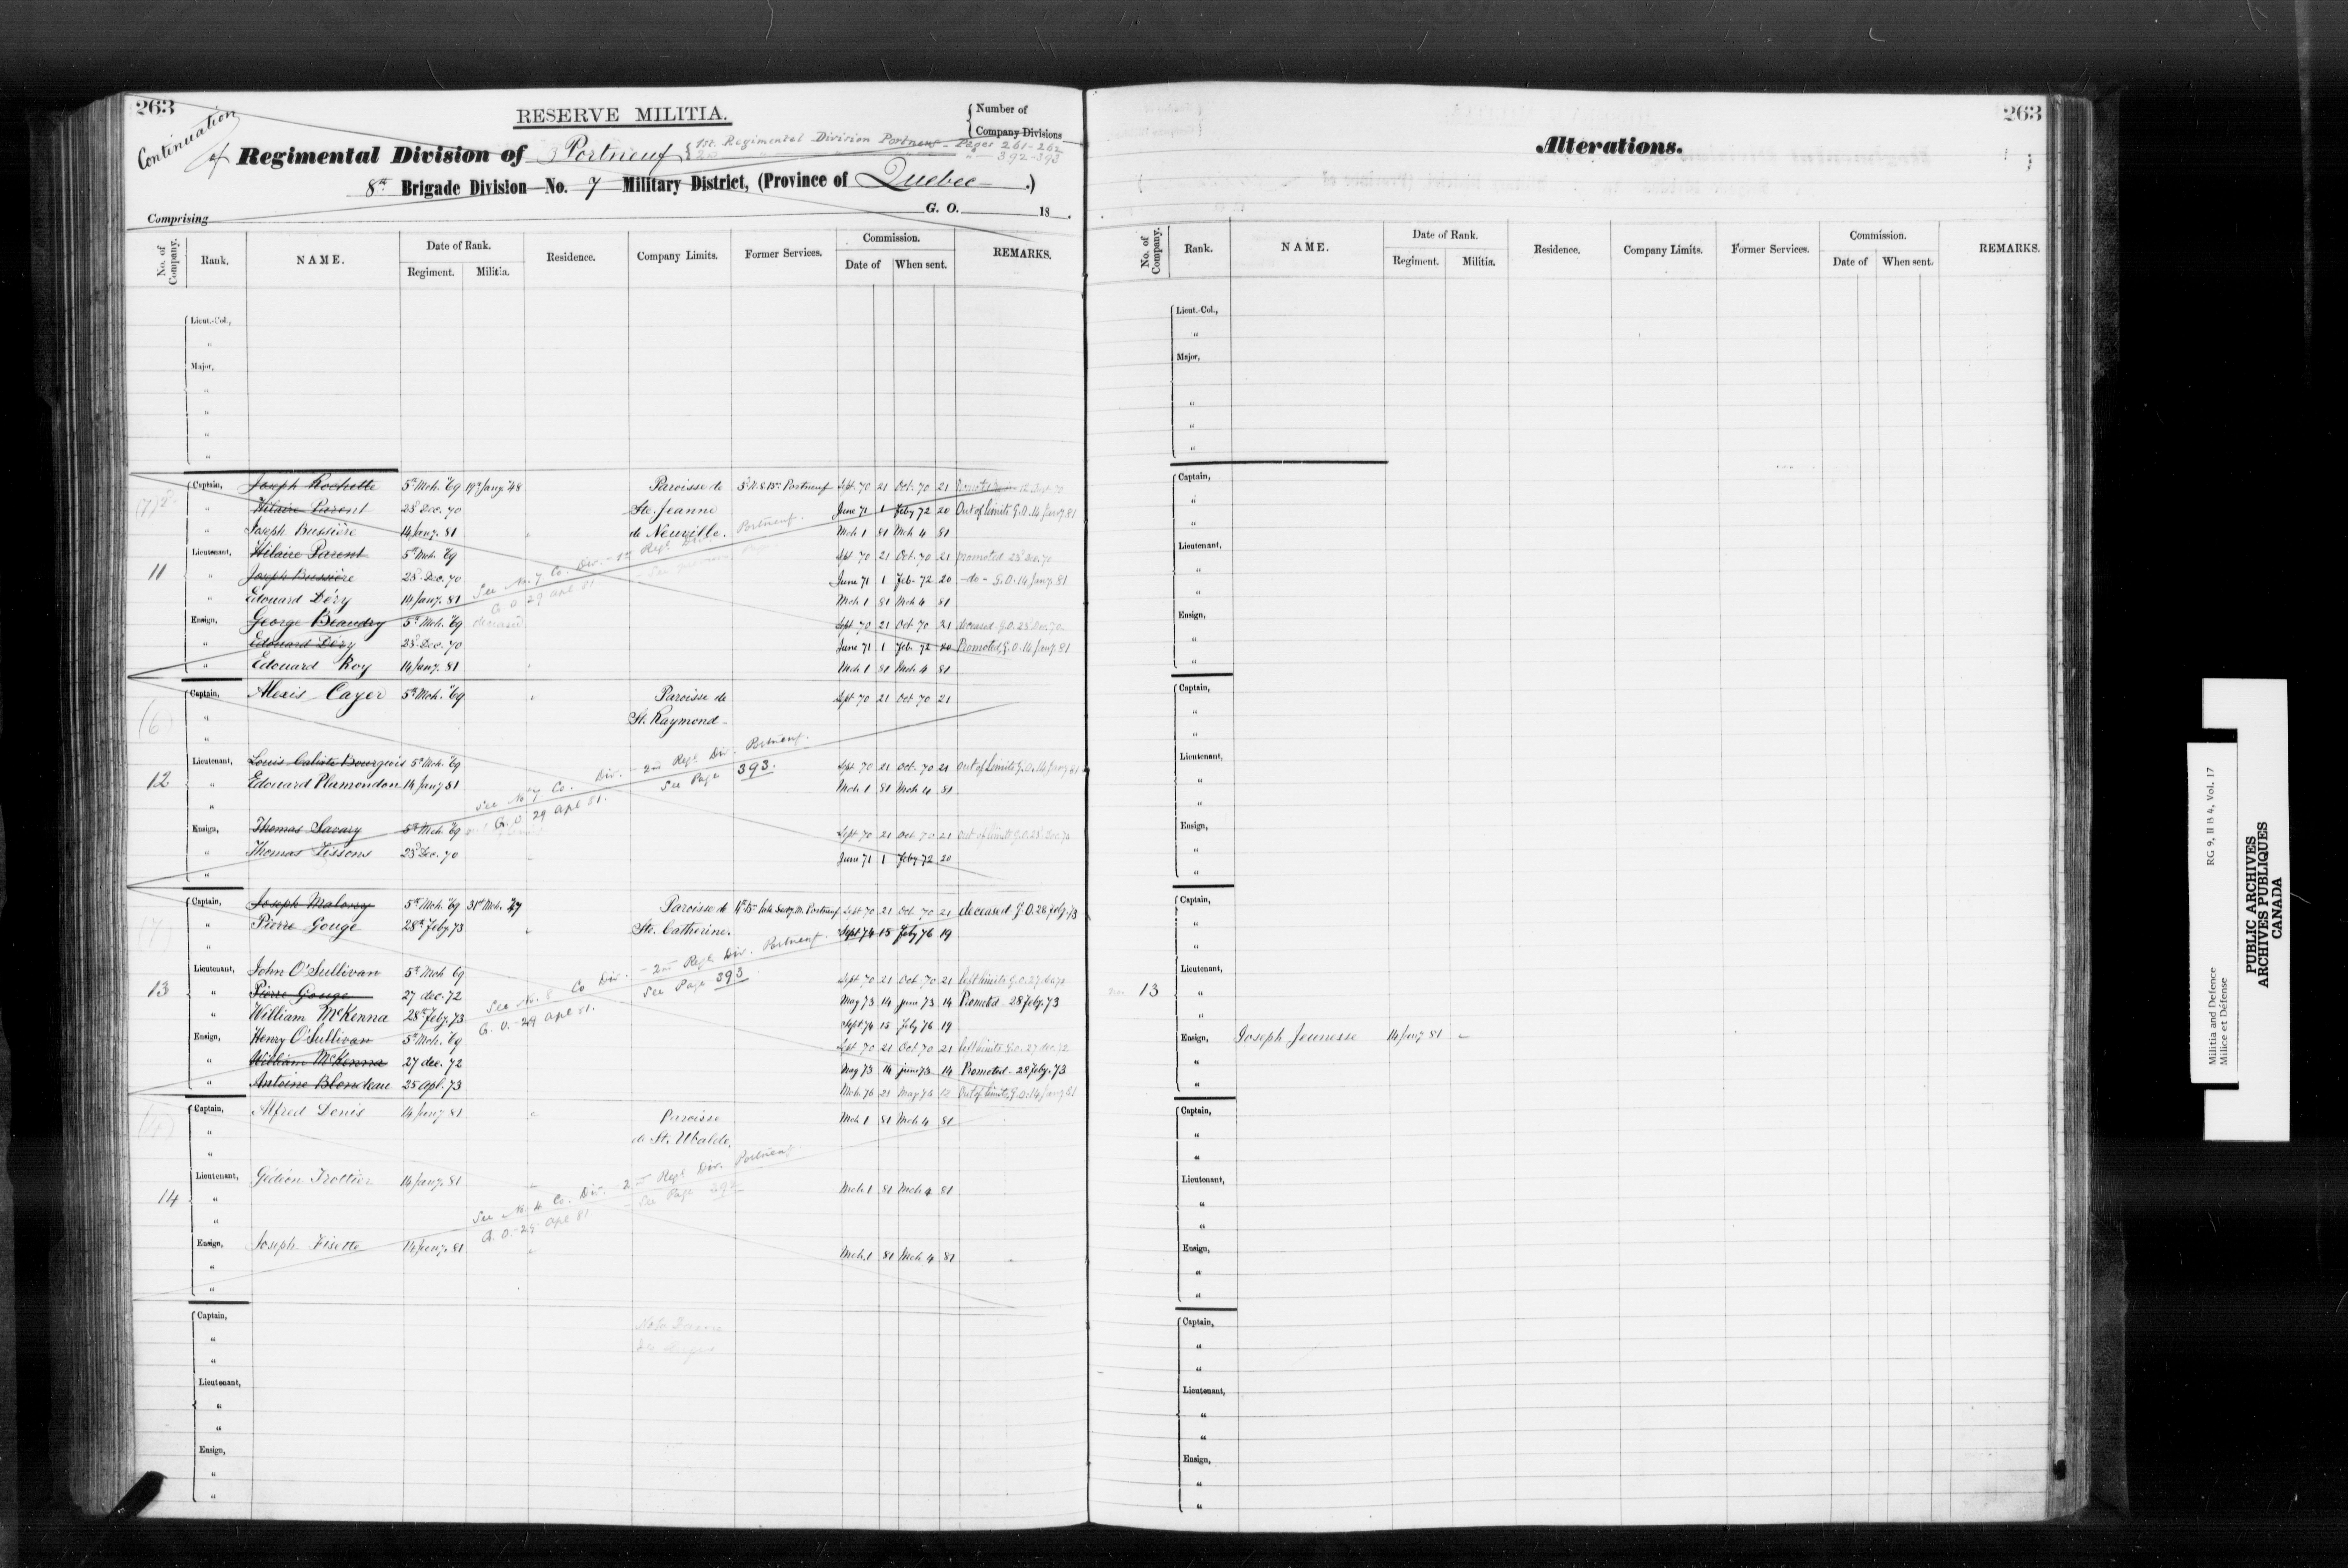 263
Continuation of
RESERVE MILITIA.
Number of Company Divisions
Regimental Division of Portneuf { 1st. Regimental Division Portneuf - Pages 261-262
" 392-393
8th Brigade Division—No. 7 Military District, (Province of Quebec .)
Comprising G. O. 18 .
No. of Company. Rank. NAME. Date of Rank. Regiment. Militia. Residence. Company Limits. Former Services. Commission. Date of When sent. REMARKS.
Lieut.-Col.,
"
Major,
"
"
"
"
11
Captain, Joseph Rochette 5th Mch. '69 19th Jany. '48 Paroisse de Portneuf Sept. 70 21 Oct. 70 21
" Hilaire Parent 23d Dec. 70 Ste. Jeanne June 71 1 Feby 72 20 Out of limits G.O. 14 Jany. 81
" Joseph Bussière 14 Jany. 81 de Neuville. Mch 1 81 Mch 4 81
Lieutenant, Hilaire Parent 5th Mch. '69 Sept 70 21 Oct. 70 21 promoted 23d Dec. 70
" Joseph Bussière 23d Dec. 70 June 71 1 Feb. 72 20 -do- G.O. 14 Jany. 81
" Edouard Déry 14 Jany. 81 Mch 1 81 Mch 4 81
Ensign, George Beaudry 5th Mch. '69 deceased Sept. 70 21 Oct 70 21 deceased G.O. 23d Dec. 70
" Edouard Déry 23d Dec. 70 June 71 1 Feb. 72 20 Promoted, G.O. 14 Jany. 81
" Edouard Roy 14 Jany. 81 Mch 1 81 Mch 4 81
See No. 7 Co. Div. - 1st Regt. Div. Portneuf.
G. O 29 Apl 81
(6)
12
Captain, Alexis Cayer 5th Mch. '69 Paroisse de Sept 70 21 Oct 70 21
" St. Raymond
"
Lieutenant, Louis Calixte Bourgeois 5th Mch. '69 Sept. 70 21 Oct. 70 21 out of limits G.O. 14 Jany. 81
" Edouard Plamondon 14 Jany 81 Mch 1 81 Mch 4 81
"
Ensign, Thomas Savary 5th Mch. '69 Sept 70 21 Oct. 70 21 Out of limits G.O. 23d Dec. 70
" Thomas 23d Dec. 70 June 71 1 Feby 72 20
"
See No. 7 Co. Div. - 2nd Regt. Div. Portneuf.
G. O 29 Apl 81. See Page 393.
(7)
13
Captain, Joseph Malony 5th Mch. '69 31st Mch. '47 Paroisse de Portneuf Sept 70 21 Oct. 70 21 deceased G.O. 28 Feby. 73
" Pierre Gouge 28th Feby. 73 Ste. Catherine. Sept 74 15 Feby 76 19
"
Lieutenant, John O'Sullivan 5th Mch 69 Sept. 70 21 Oct. 70 21 left limits G.O. 27 dec 72
" Pierre Gouge 27 dec. 72 May 73 14 June 73 14 Promoted - 28 Feby. 73
" William McKenna 28th Feby. 73 Sept 74 15 Feby 76 19
Ensign, Henry O'Sullivan 5th Mch. '69 Sept. 70 21 Oct 70 21 left limits G.O. 27 dec. 72
" William McKenna 27 dec. 72 May 73 14 June 73 14 Promoted - 28 Feby. 73
" Antoine Blondeau 25 Apl. 73 Mch. 76 21 May 76 12 Out of limits, G.O. 14 Jany 81
See No. 8 Co Div. - 2nd Regt. Div. Portneuf.
G. O. - 29 Apl 81. See Page 393
14
Captain, Alfred Denis 14 Jany 81 Paroisse Mch 1 81 Mch 4 81
" de St. Ubalde.
"
Lieutenant, Gédéon Trottier 14 Jany. 81 Mch. 1 81 Mch 4 81
"
"
Ensign, Joseph Fisette 14 Jany. 81 Mch. 1 81 Mch 4 81
"
"
See No. 4 Co. Div. 2nd Regt. Div. Portneuf
G. O. - 29 Apl 81 - See Page 392
Captain, Notre Dame
"
"
Lieutenant,
"
"
Ensign,
"
"
263
Alterations.
No. of Company. Rank. NAME. Date of Rank. Regiment. Militia. Residence. Company Limits. Former Services. Commission. Date of When sent. REMARKS.
Lieut.-Col.,
"
Major,
"
"
"
Captain,
"
"
Lieutenant,
"
"
Ensign,
"
"
Captain,
"
"
Lieutenant,
"
"
Ensign,
"
"
Captain,
"
"
Lieutenant,
13 "
"
Ensign, Joseph Jeunesse 14 Jany 81
"
"
Captain,
"
"
Lieutenant,
"
"
Ensign,
"
"
Captain,
"
"
Lieutenant,
"
"
Ensign,
"
"
Militia and Defence RG 9, II B 4, Vol. 17
Milice et Défense
PUBLIC ARCHIVES
ARCHIVES PUBLIQUES
CANADA